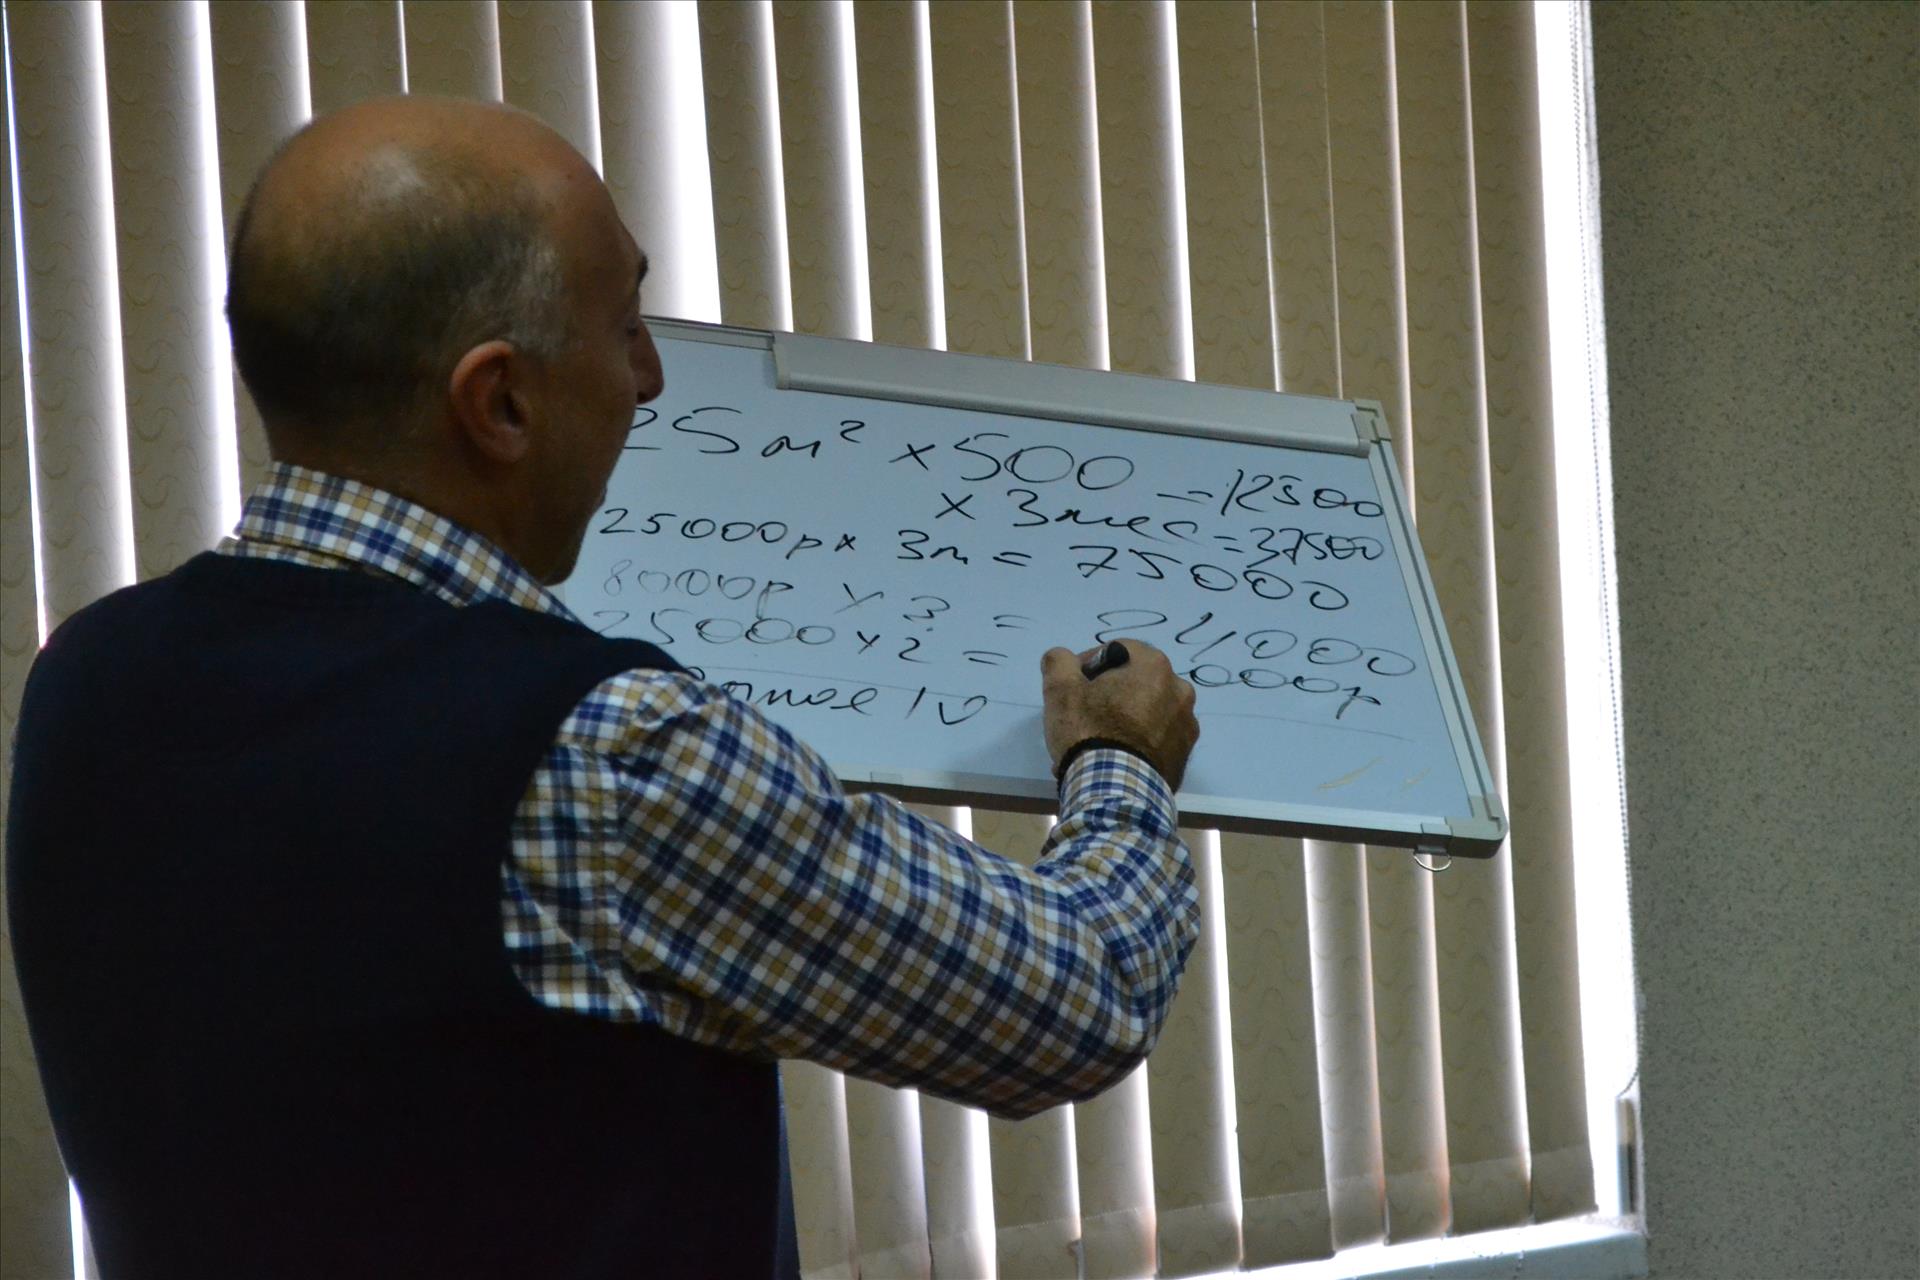 25 м² × 500 = 12500
× 3 мес = 37500
25000р × 3м = 75000
8000р × 3 = 24000
25000 × 2 = 000р